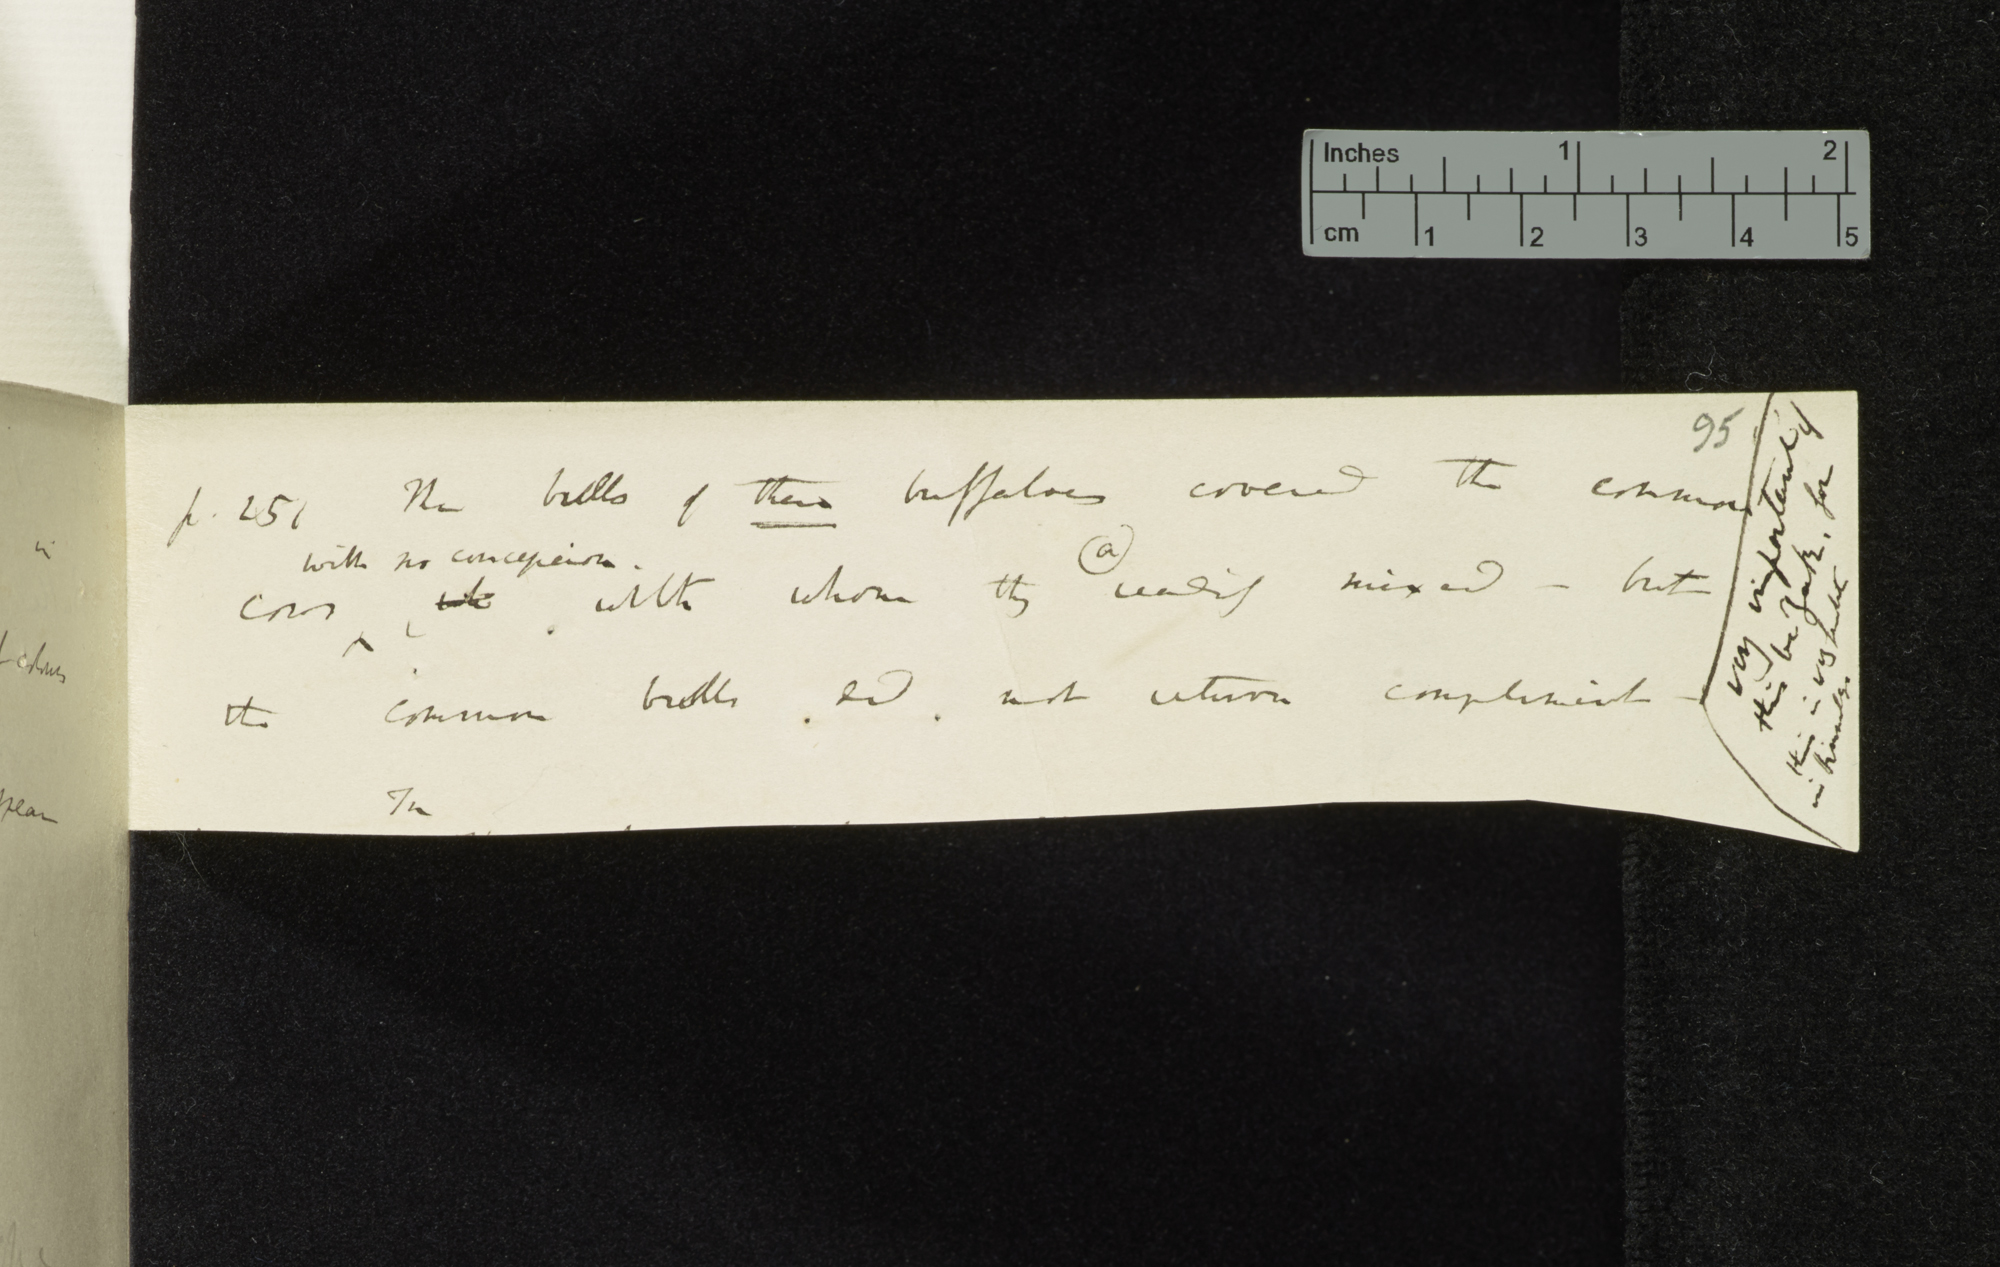 95
p. 251 The bulls of these buffaloes covered the common
with no conception.
cows with whom they (a) readily mixed — but
the common bulls did not return compliment —
In
very important if
this be fact, for
this is very
in
in
Inches 1 2
cm 1 2 3 4 5